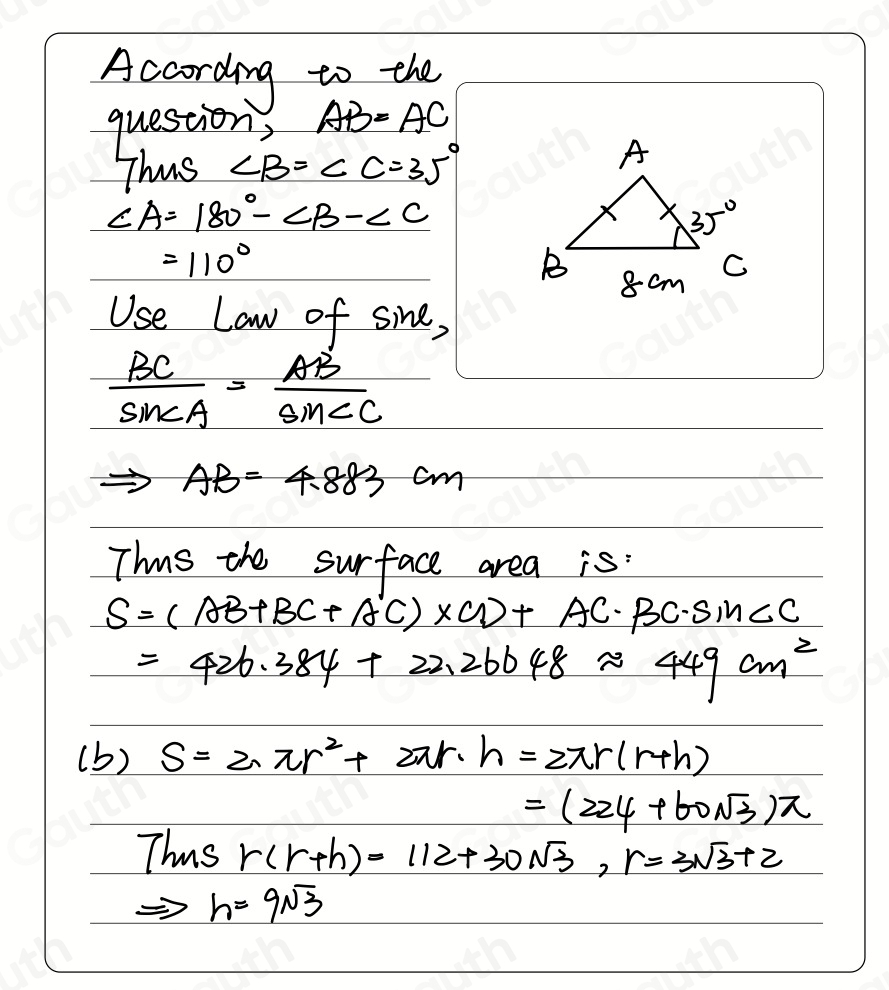 According to the
question, AB = AC
Thus ∠B = ∠C = 35°
∠A = 180° - ∠B - ∠C
= 110°
Use Law of sine,
BC/sin∠A = AB/sin∠C
⇒ AB = 4.883 cm
Thus the surface area is:
S = (AB + BC + AC) × CD + AC · BC · sin∠C
= 426.384 + 22.26648 ≈ 449 cm²
(b) S = 2 · πr² + 2πr · h = 2πr(r+h)
= (224 + 60√3)π
Thus r(r+h) = 112 + 30√3 , r = 3√3 + 2
⇒ h = 9√3
A
35°
B
C
8 cm
Gauth